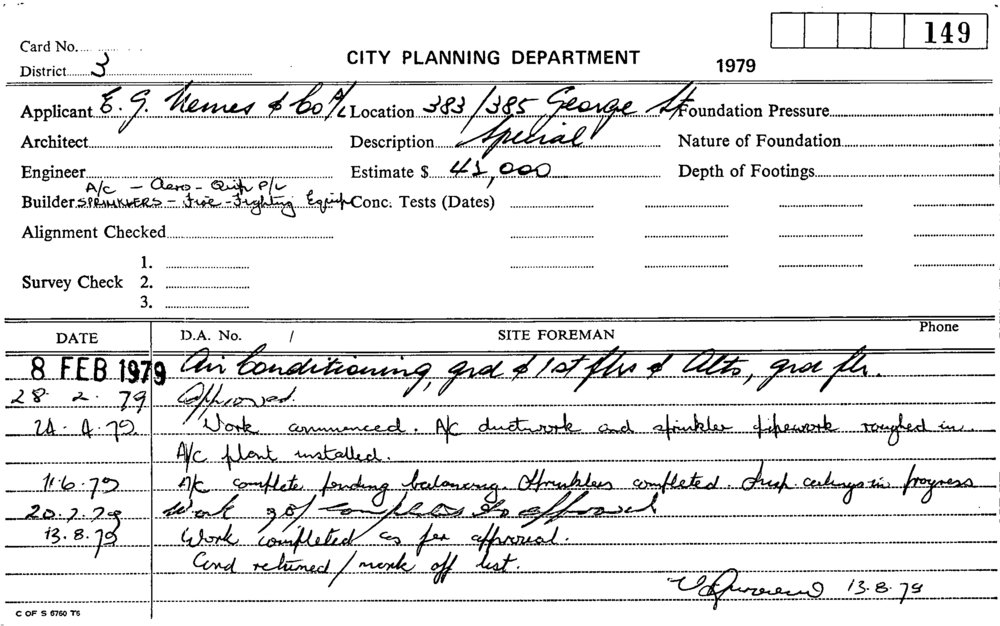 149
Card No.
CITY PLANNING DEPARTMENT
1979
District 3
Applicant E. G. Nemes & Co P/L Location 383/385 George St Foundation Pressure
Architect Description Special Nature of Foundation
Engineer Estimate $ 41,000 Depth of Footings
A/C - Aero-Quip P/L
Builder SPRINKLERS - Fire-Fighting Equip Conc. Tests (Dates)
Alignment Checked
1.
Survey Check 2.
3.
DATE D.A. No. / SITE FOREMAN Phone
8 FEB 1979 Air Conditioning, grd & 1st flrs & Alts, grd flr.
28. 2. 79 Approved.
24.4.79. Work commenced. A/c ductwork and sprinkler pipework roughed in.
A/c plant installed.
11.6.79 A/c complete pending balancing. Sprinklers completed. Susp. ceilings in progress
20.7.79 Work 90% complete as approved
13.8.79 Work completed as per approval.
Card returned / mark off list.
13.8.79
C OF S 6760 T6